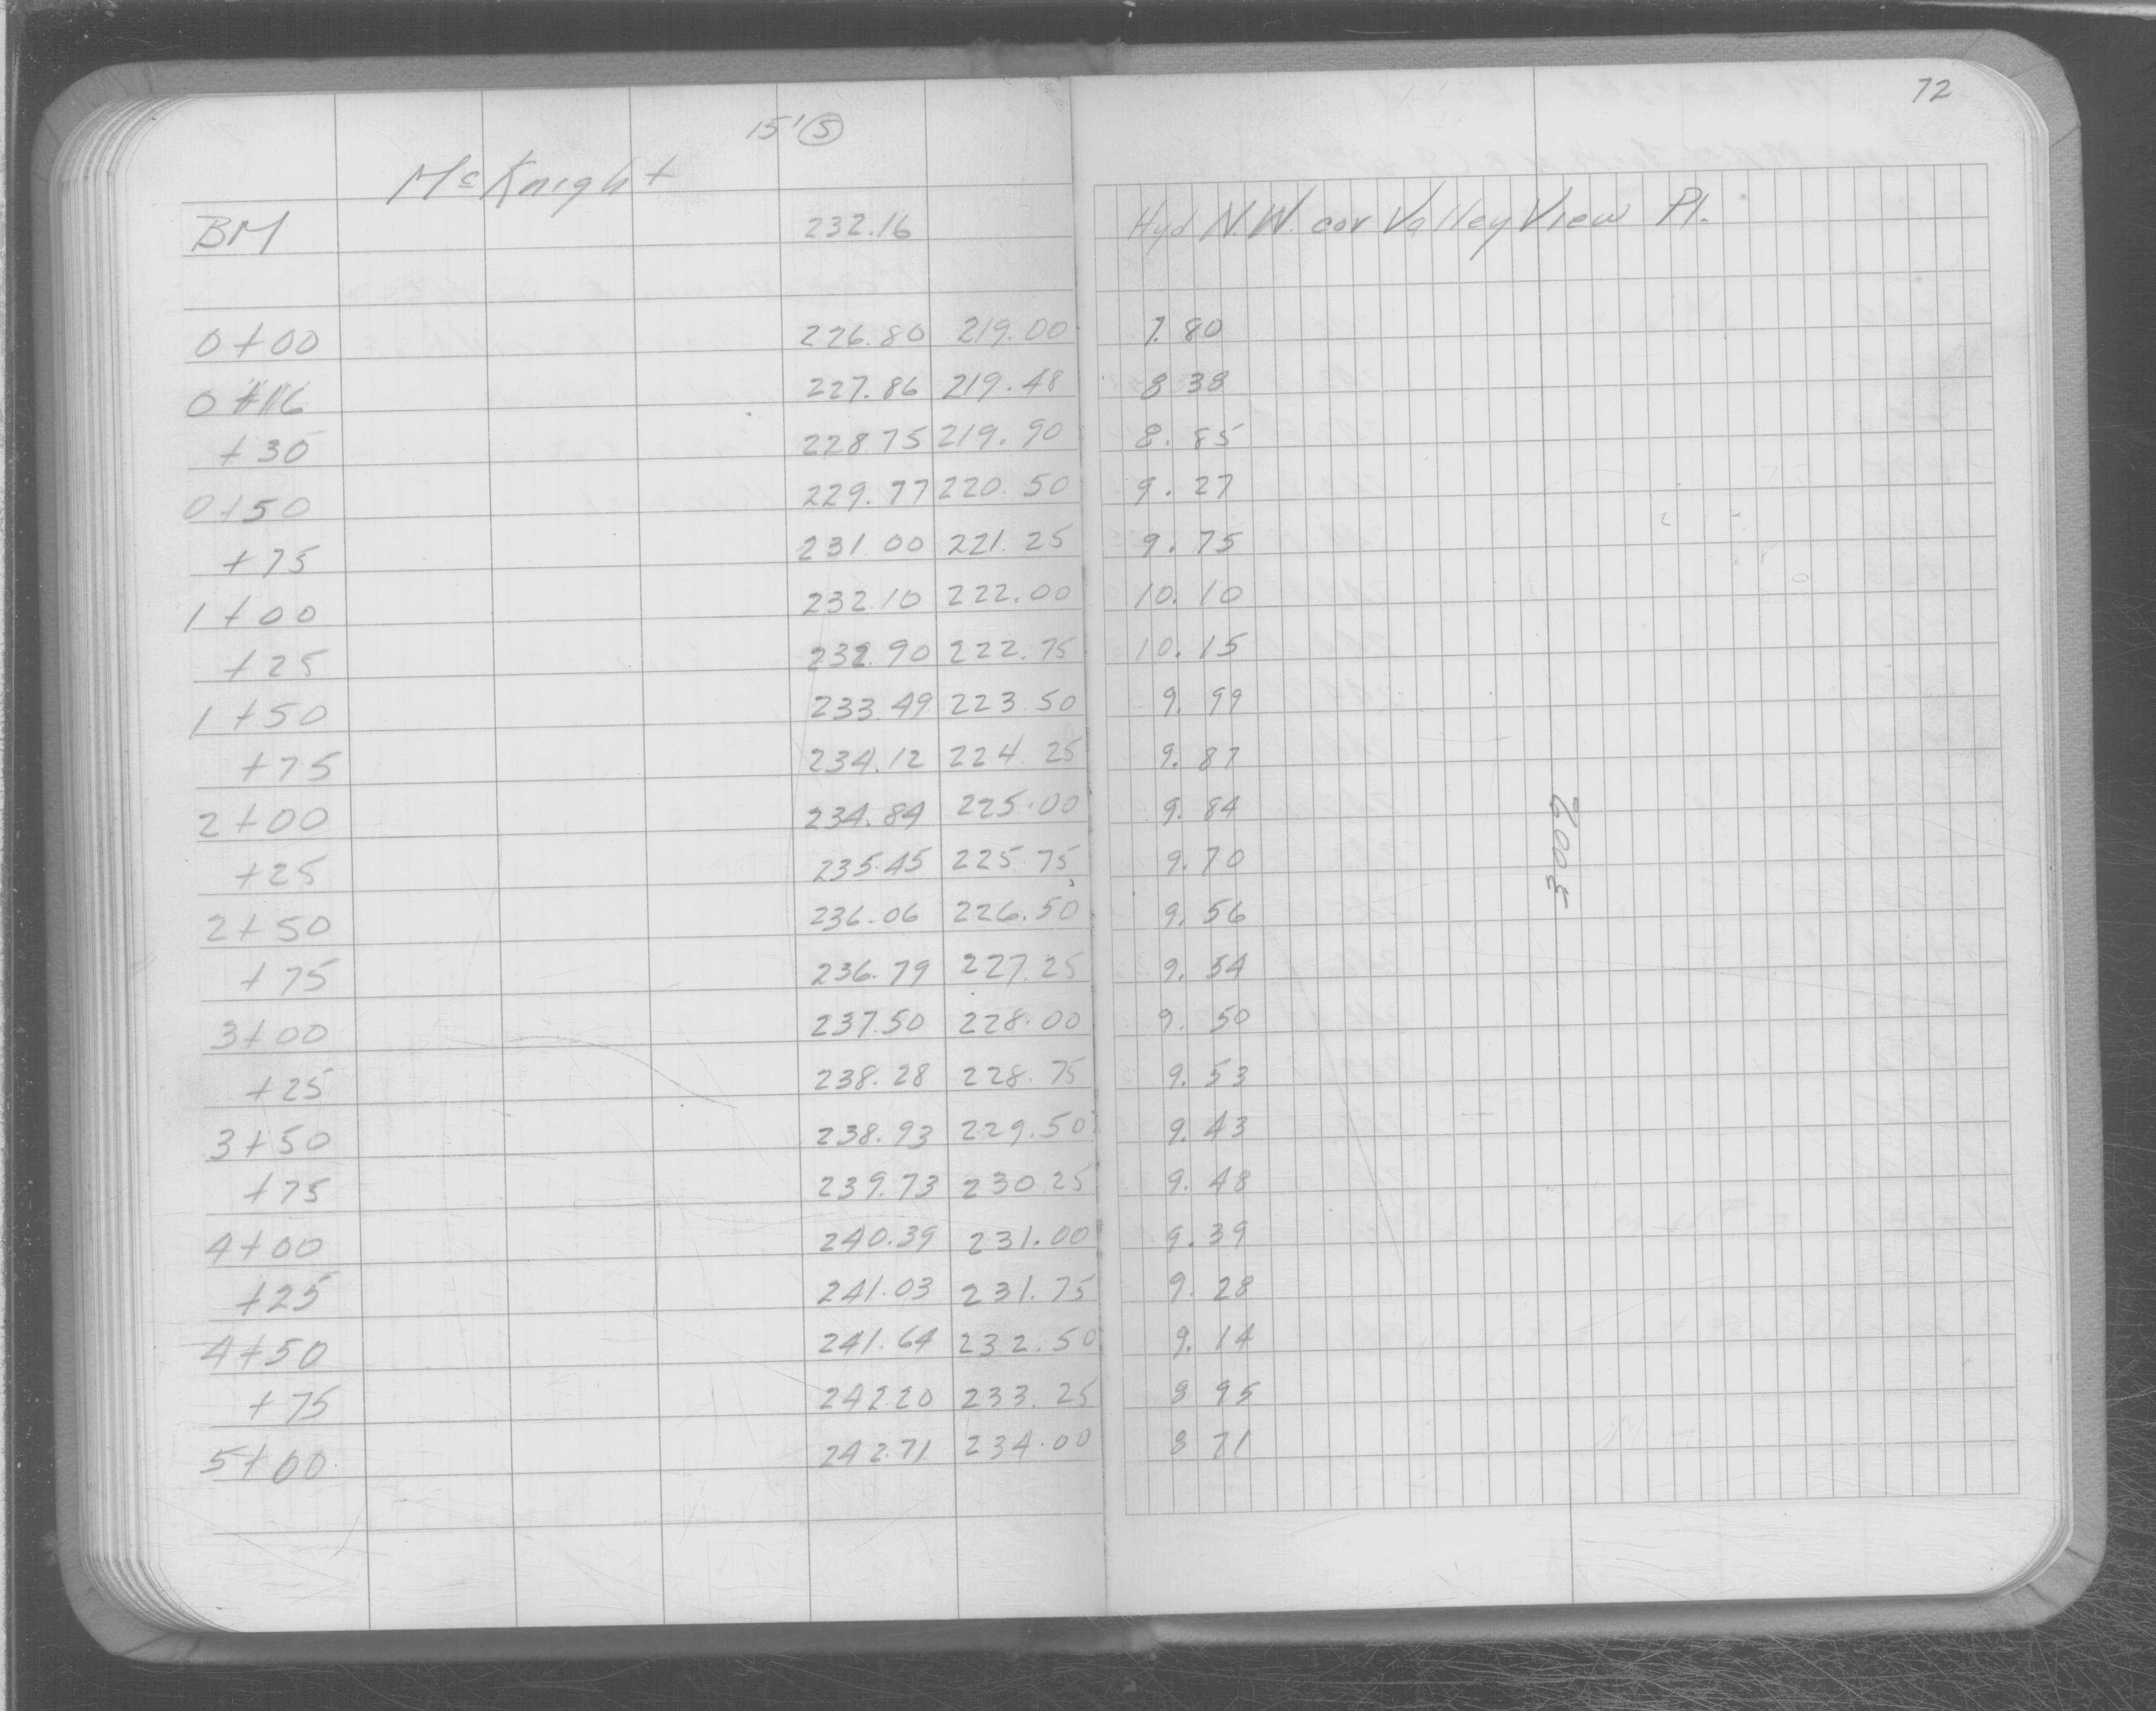 72
15' S
McKnight
BM 232.16 Hyd N.W. cor Valley View Pl.
0+00 226.80 219.00 7.80
0+16 227.86 219.48 8 38
+30 228.75 219.90 8.85
0+50 229.77 220.50 9.27
+75 231.00 221.25 9.75
1+00 232.10 222.00 10.10
+25 232.90 222.75 10.15
1+50 233.49 223.50 9.99
+75 234.12 224.25 9.87
2+00 234.84 225.00 9.84
+25 235.45 225.75 9.70
2+50 236.06 226.50 9.56
+75 236.79 227.25 9.54
3+00 237.50 228.00 9.50
+25 238.28 228.75 9.53
3+50 238.93 229.50 9.43
+75 239.73 230 25 9.48
4+00 240.39 231.00 9.39
+25 241.03 231.75 9.28
4+50 241.64 232.50 9.14
+75 242 20 233.25 8 95
5+00 242.71 234.00 8 71